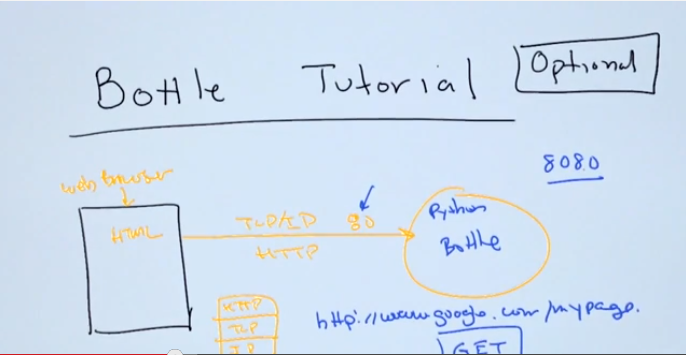 Bottle Tutorial Optional
8080
web browser
HTML
TCP/IP 80
HTTP
Python
Bottle
HTTP
TCP
IP
http://www.google.com/mypage.
GET